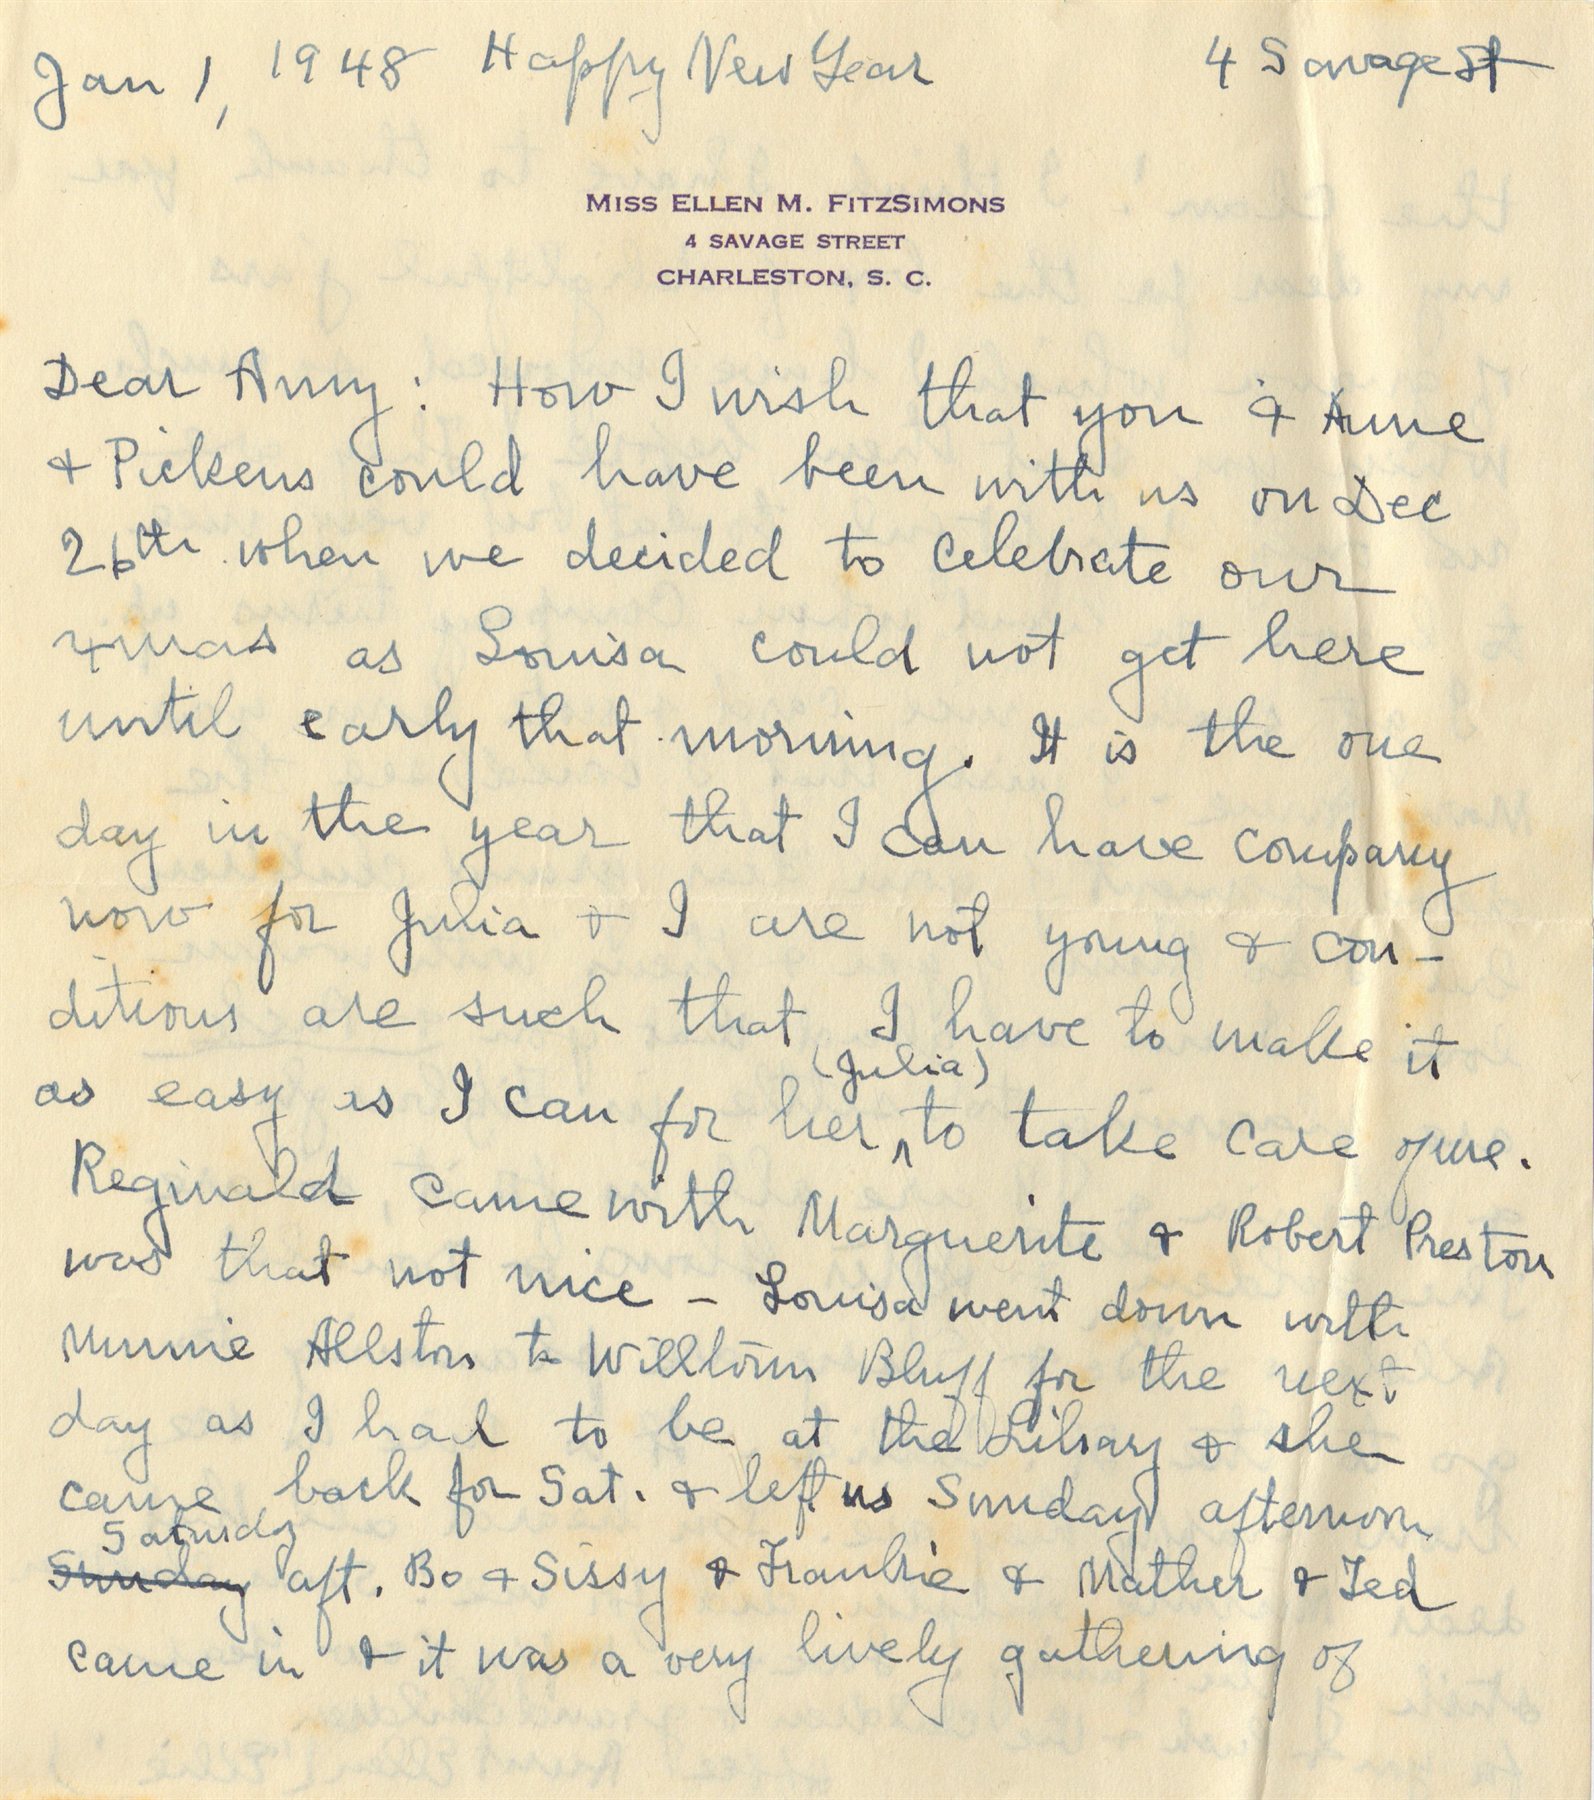 Jan 1, 1948 Happy New Year 4 Savage St
MISS ELLEN M. FITZSIMONS
4 SAVAGE STREET
CHARLESTON, S. C.
Dear Amy: How I wish that you & Anne
& Pickens could have been with us on Dec
26th when we decided to celebrate our
xmas as Louisa could not get here
until early that morning. It is the one
day in the year that I can have company
now for Julia & I are not young & con-
ditions are such that I have to make it
(Julia)
as easy as I can for her, ^ to take care of me.
Reginald came with Marguerite & Robert Preston
was that not nice - Louisa went down with
Minnie Allston to Willtown Bluff for the next
day as I had to be at the Library & she
came back for Sat. & left us Sunday afternoon
Saturday
Sunday aft. Bo & Sissy & Frankie & Mather & Ted
came in & it was a very lively gathering of